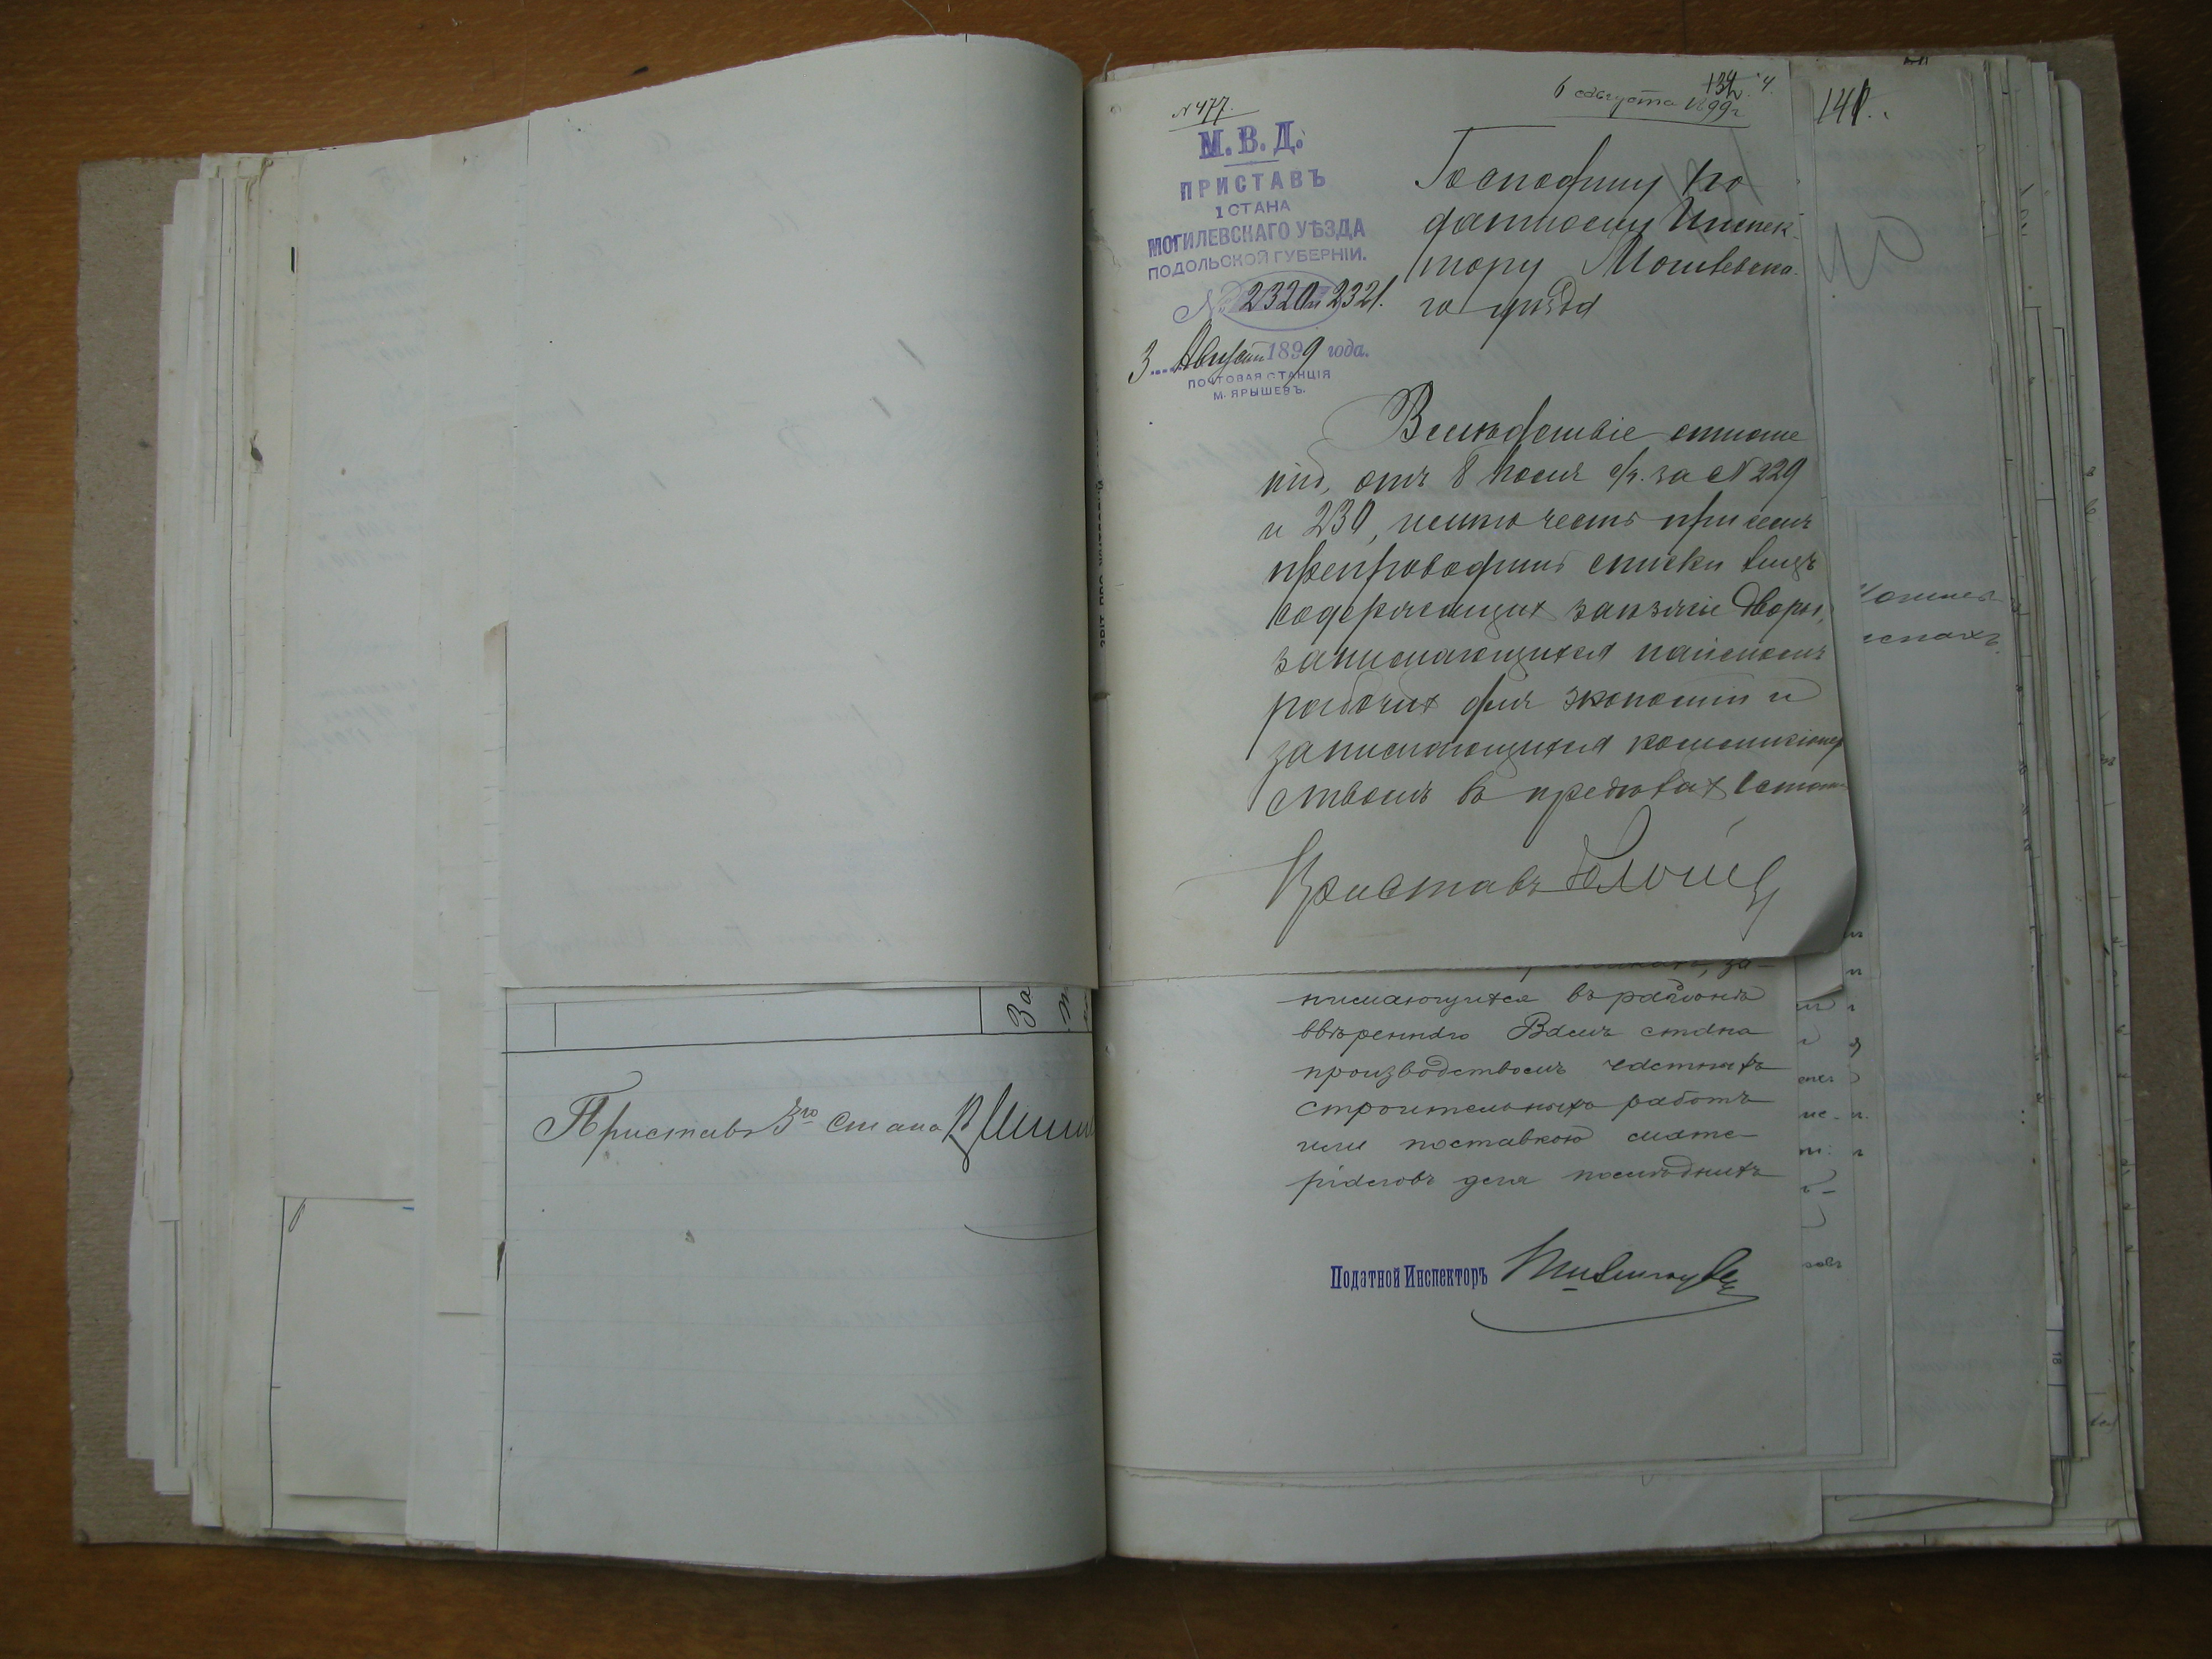 Приставъ 3го Стана
За
№ 477.
6 августа 1899 г
134
М. В. Д.
ПРИСТАВЪ
1 СТАНА
МОГИЛЕВСКАГО УѢЗДА
ПОДОЛЬСКОЙ ГУБЕРНІИ.
№ 2320 и 2321.
3 Августа 1899 года.
ПОЧТОВАЯ СТАНЦІЯ
М. ЯРЫШЕВЪ.
Господину По
датному Инспек-
тору Могилевска-
го уѣзда
Вслѣдствіе отноше
нія, отъ 8 Іюля с/г. за № 229
и 230, имѣю честь при семъ
препроводить списки лицъ
содержащихъ заѣзжіе дворы,
занимающихся наймомъ
рабочих для экономій и
занимающихся коммисіонер
ствомъ въ пределах 1 стана
Приставъ
нимающихся въ районѣ
ввѣреннаго Вамъ стана
производствомъ частныхъ
строительныхъ работъ
или поставкою мате-
ріаловъ для послѣднихъ
Податной Инспекторъ
141.
18